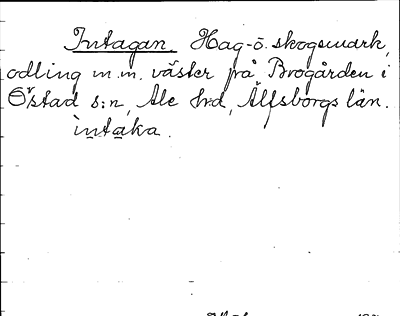 Intagan. Hag- o. skogsmark,
odling m.m. väster på Brogården i
Östad s:n, Ale hrd, Älfsborgs län.
intaka.